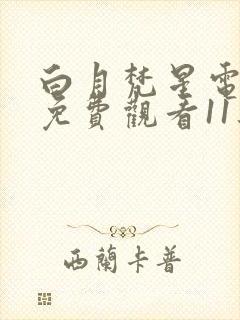 白月梵星電
免費觀看11
西蘭卡普